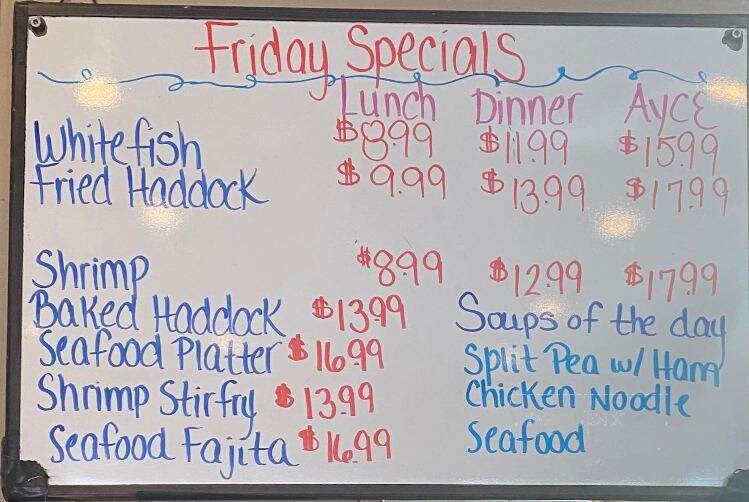 Friday Specials
Lunch Dinner AYCE
Whitefish $8.99 $11.99 $15.99
Fried Haddock $9.99 $13.99 $17.99
Shrimp $8.99 $12.99 $17.99
Baked Haddock $13.99
Seafood Platter $16.99
Shrimp Stirfry $13.99
Seafood Fajita $16.99
Soups of the day
Split Pea w/ Ham
Chicken Noodle
Seafood